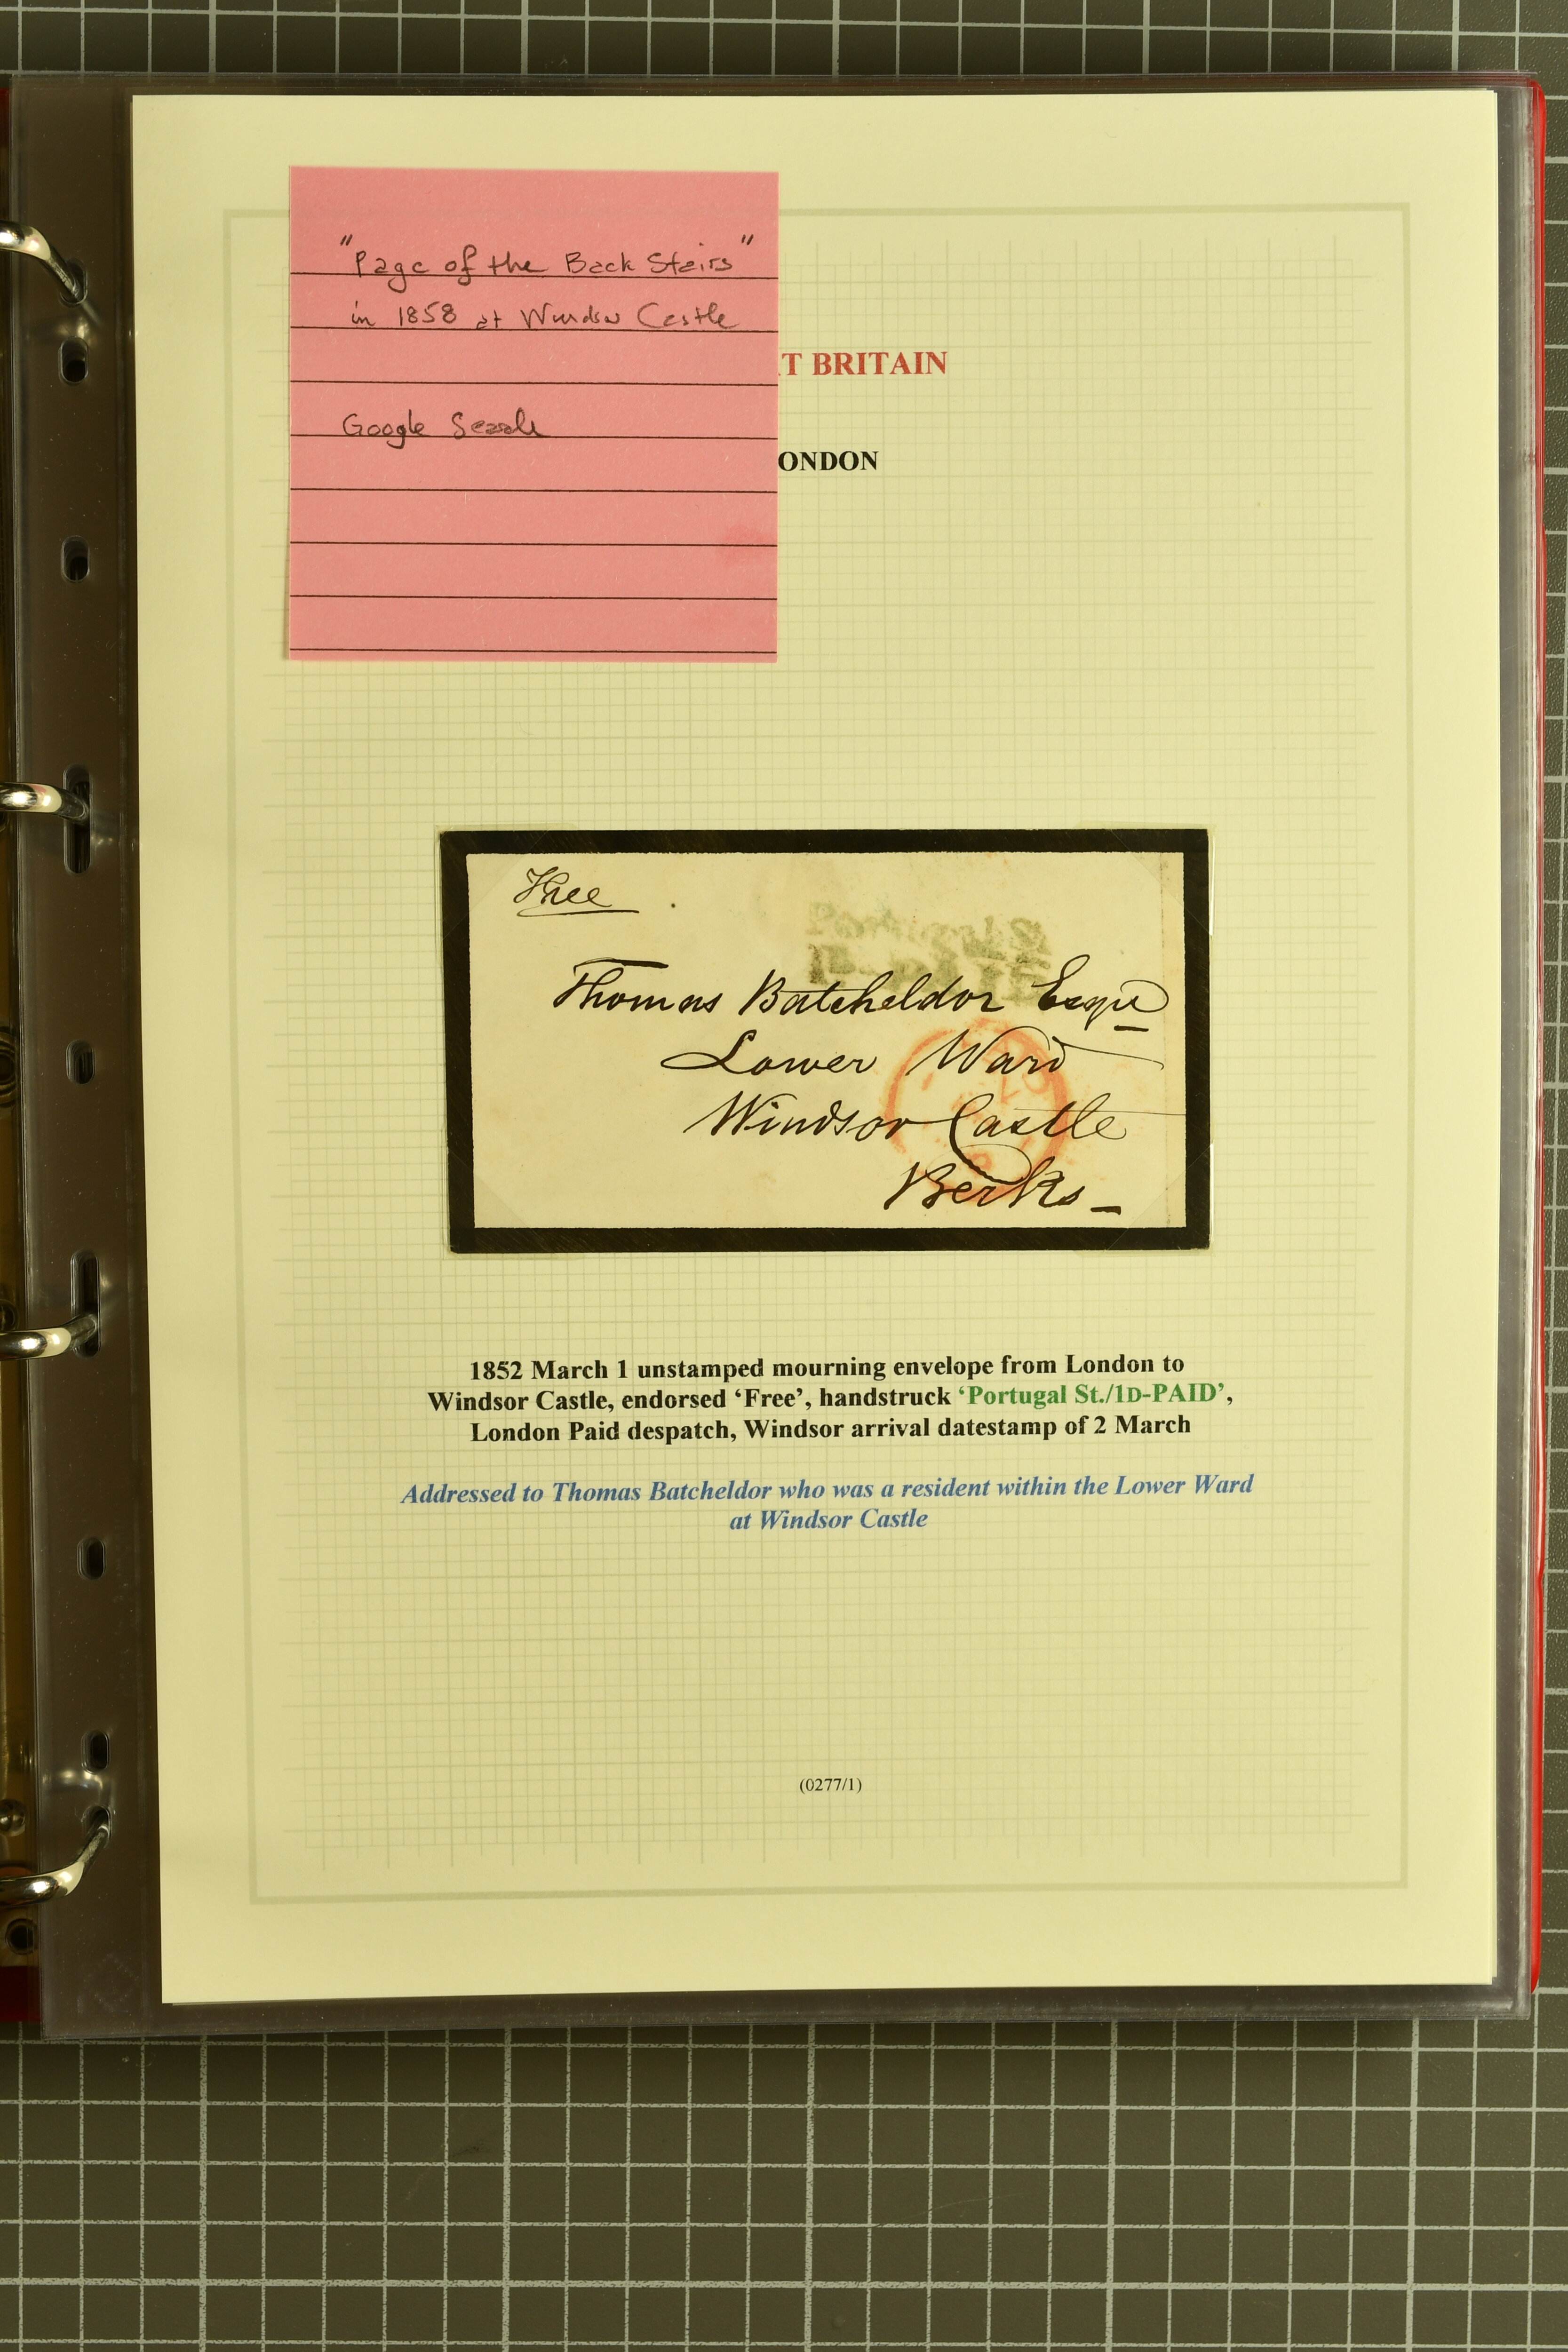 "Page of the Back Stairs"
in 1858 at Windsor Castle
Google Search
T BRITAIN
ONDON
Free
Thomas Batcheldor Esqre
Lower Ward
Windsor Castle
Berks
1852 March 1 unstamped mourning envelope from London to
Windsor Castle, endorsed ‘Free’, handstruck ‘Portugal St./1D-PAID’,
London Paid despatch, Windsor arrival datestamp of 2 March
Addressed to Thomas Batcheldor who was a resident within the Lower Ward
at Windsor Castle
(0277/1)